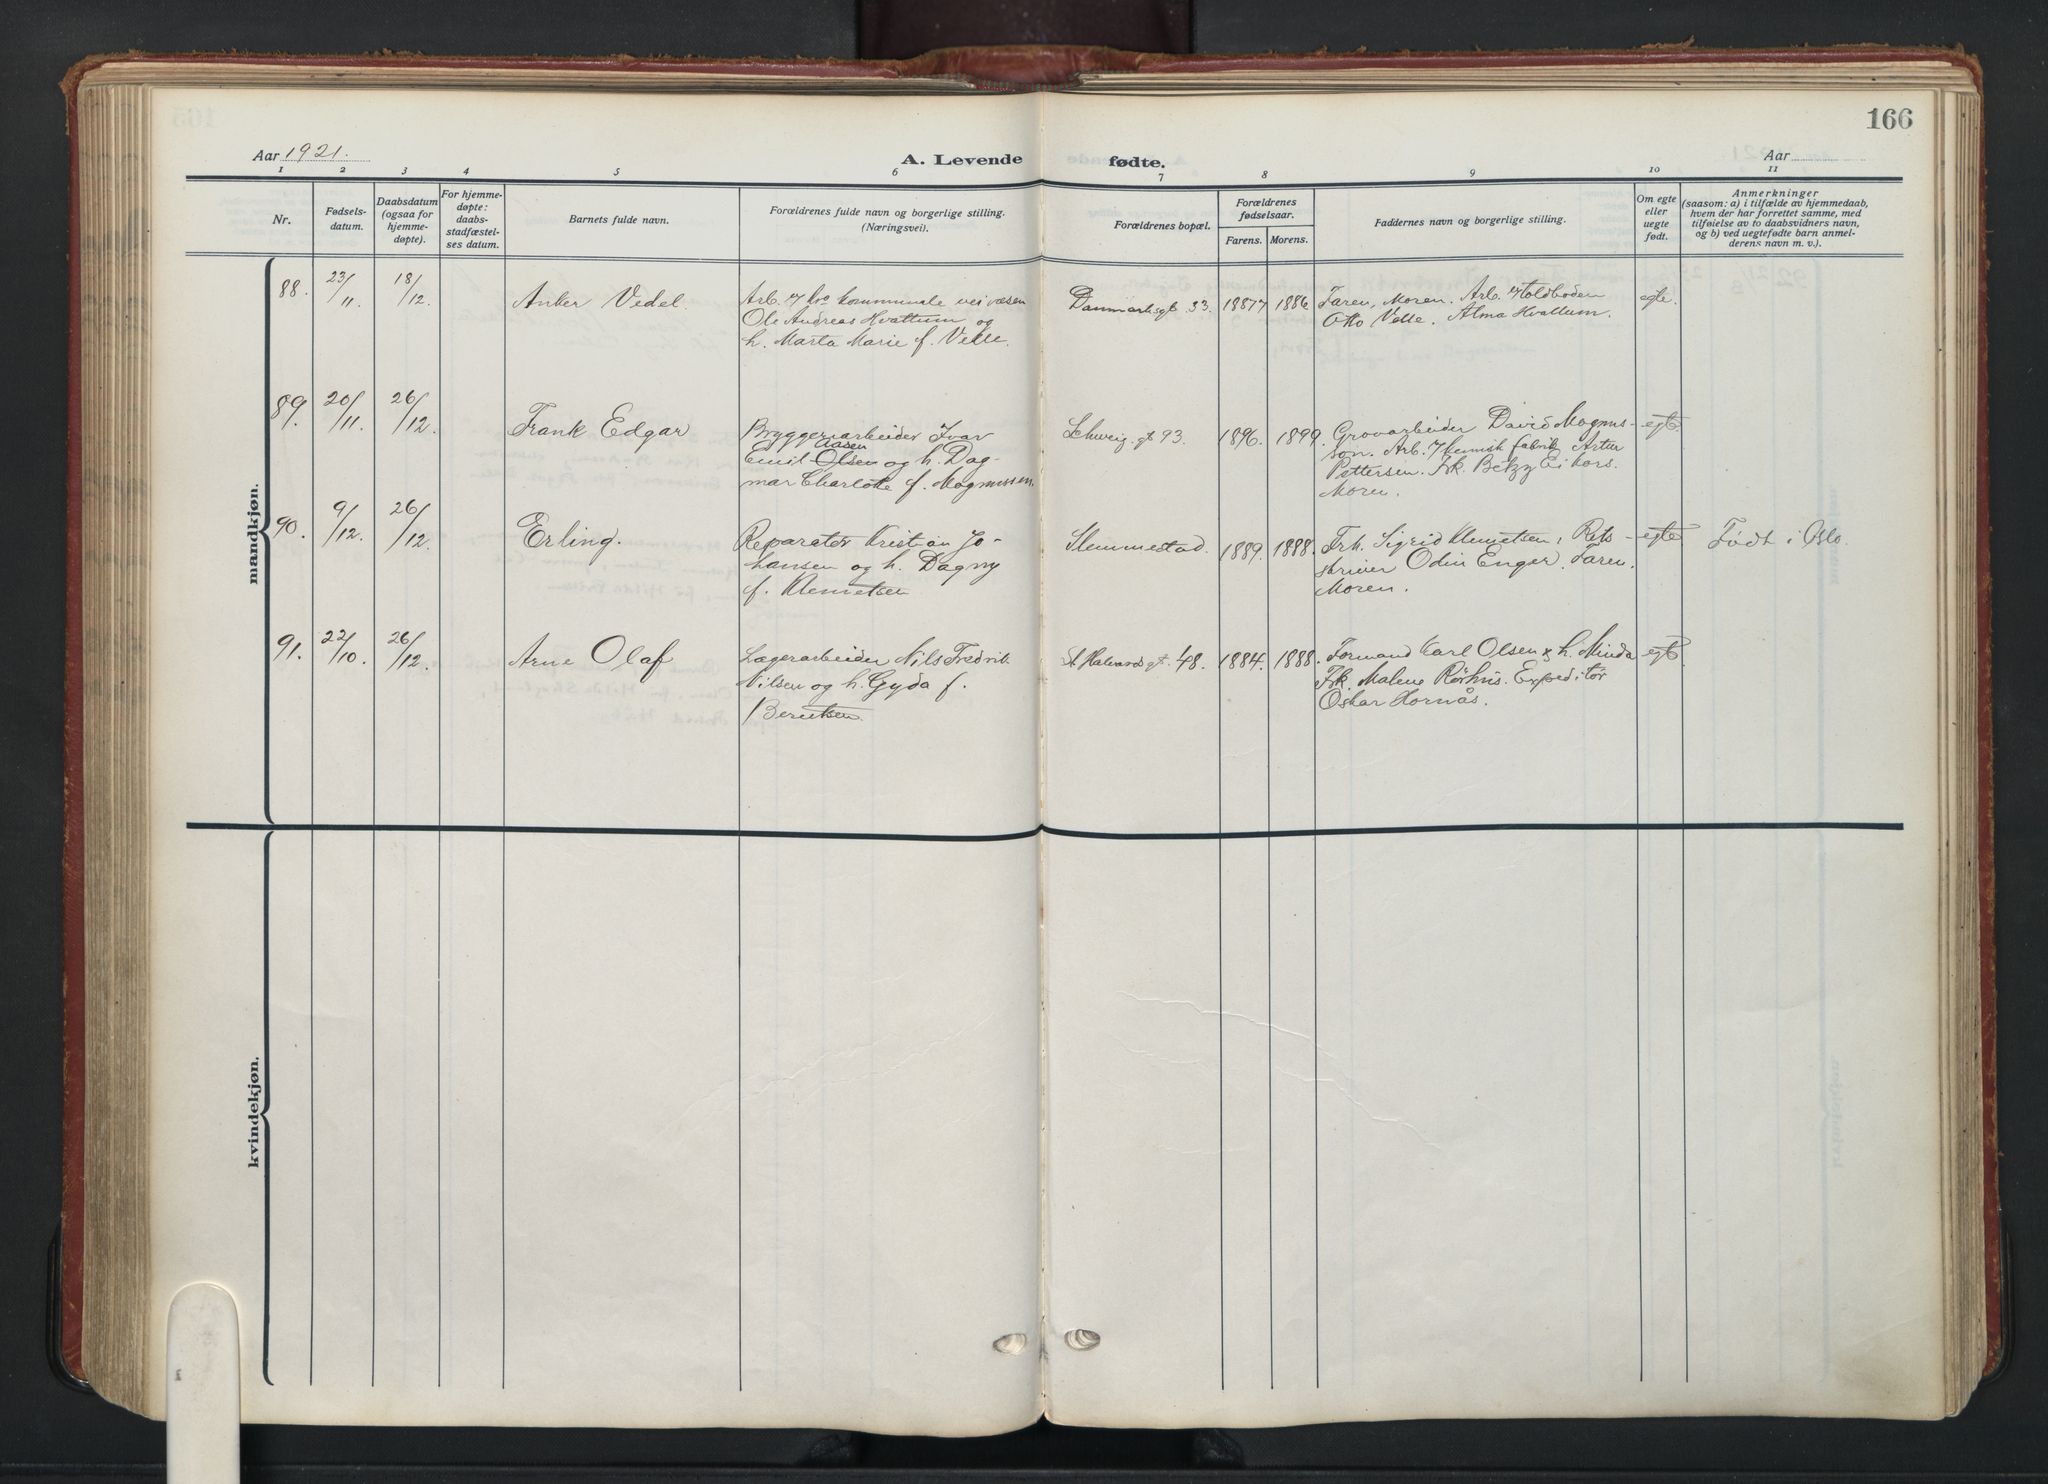 166
Aar 1921.
A. Levende fødte.
Aar
1 2 3 4 5 6 7 8 9 10 11
Nr.
Fødsels-
datum.
Daabsdatum
(ogsaa for
hjemme-
døpte).
For hjemme-
døpte:
daabs-
stadfæstel-
ses datum.
Barnets fulde navn.
Forældrenes fulde navn og borgerlige stilling.
(Næringsvei).
Forældrenes bopæl.
Forældrenes
fødselsaar.
Farens. Morens.
Faddernes navn og borgerlige stilling.
Om egte
eller
uegte
født.
Anmerkninger
(saasom: a) i tilfælde av hjemmedaab,
hvem der har forrettet samme, med
tilføielse av to daabsvidners navn,
og b) ved uegtefødte barn anmel-
derens navn m. v.).
mandkjøn.
88. 23/11 18/12 Anker Vedel
Arb. v/ Kra kommunale veivæsen
Ole Andreas Hvattum og
h. Marta Marie f. Velle.
Danmarksgt 33. 1887 1886
Faren, Moren. Arb. v/Toldboden
Otto Velle. Alma Hvattum.
egte.
89. 20/11 26/12. Frank Edgar
Bryggeriarbeider Ivar
Aasen
Emil Olsen og h. Dag-
mar Charlotte f. Magnussen.
Schweig. gt 93. 1896. 1899.
Grovarbeider David Magnus-
son. Arb. v/ Kemisk fabrik Artur
Pettersen. Frk. Betzy Eikors.
Moren.
egte.
90. 9/12. 26/12. Erling.
Reparatør Kristian Jo-
hansen og h. Dagny
f. Klemetsen
Slemmestad. 1889. 1888.
Frk. Sigrid Klemetsen, Rets-
skriver Odin Enger. Faren.
Moren.
egte
Født i Oslo.
91. 22/10. 26/12. Arne Olaf
Lagerarbeider Nils Fredrik
Nilsen og h. Gyda f.
Berntsen.
St. Halvardsgt. 48. 1884. 1888.
Formand Karl Olsen & h. Minda
Frk. Malene Rørhus. Expeditør
Oskar Hornås.
egte.
kvindekjøn.